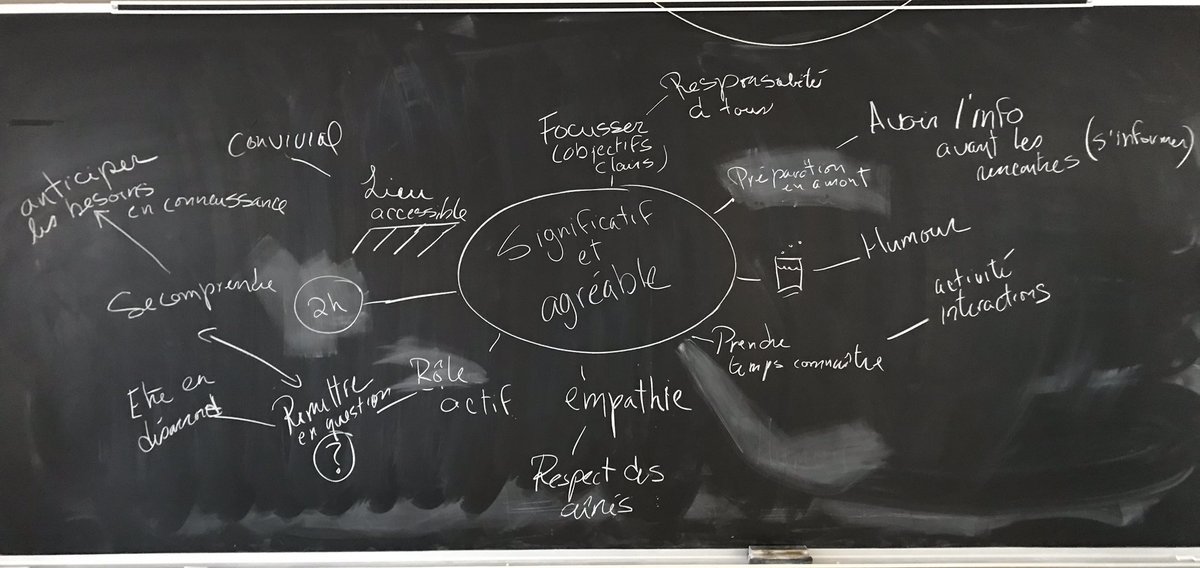 Responsabilité
à tous
Focusser
(objectifs
clairs)
Avoir l'info
avant les
rencontres
(s'informer)
Préparation
en amont
Convivial
Lieu
accessible
anticiper
les besoins
en connaissance
Significatif
et
agréable
Humour
activité
interactions
Se comprendre
2h
Prendre
temps connaître
Rôle
actif
empathie
Être en
désaccord
Remettre
en question
?
Respect des
aînés